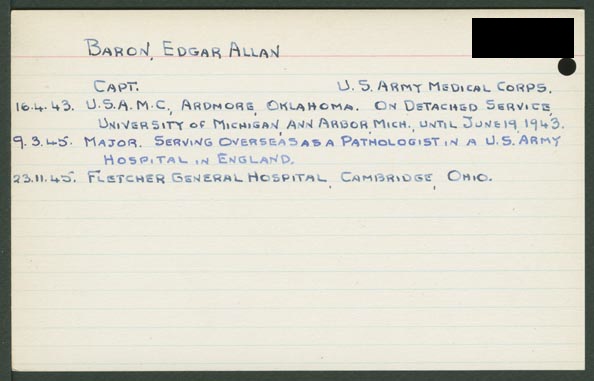 BARON, EDGAR ALLAN
CAPT. U.S. ARMY MEDICAL CORPS.
16.4.43. U.S.A.M.C., ARDMORE, OKLAHOMA. ON DETACHED SERVICE,
UNIVERSITY OF MICHIGAN, ANN ARBOR, MICH., UNTIL JUNE 19, 1943.
9.3.45. MAJOR. SERVING OVERSEAS AS A PATHOLOGIST IN A U.S. ARMY
HOSPITAL IN ENGLAND.
23.11.45. FLETCHER GENERAL HOSPITAL, CAMBRIDGE, OHIO.